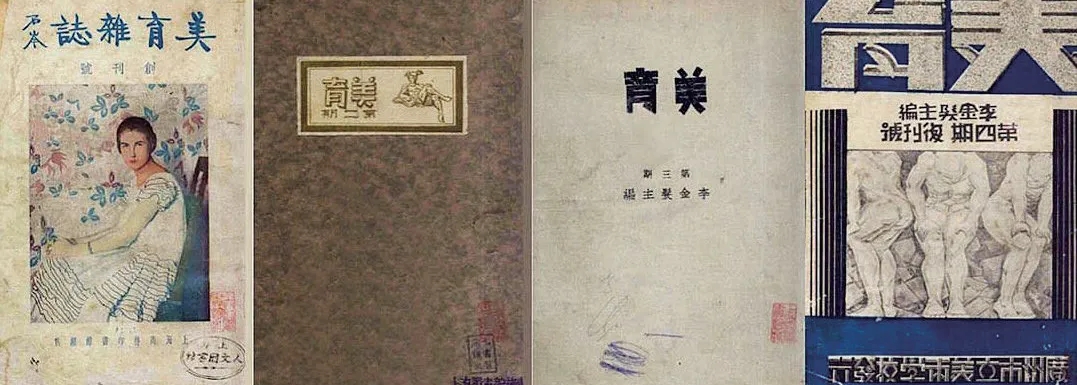 美育雜誌
石岑
創刊號
美育
第二期
美育
第三期
李金髮主編
美育
李金髮主編
第四期 復刊號
廣州市立美術學校發行